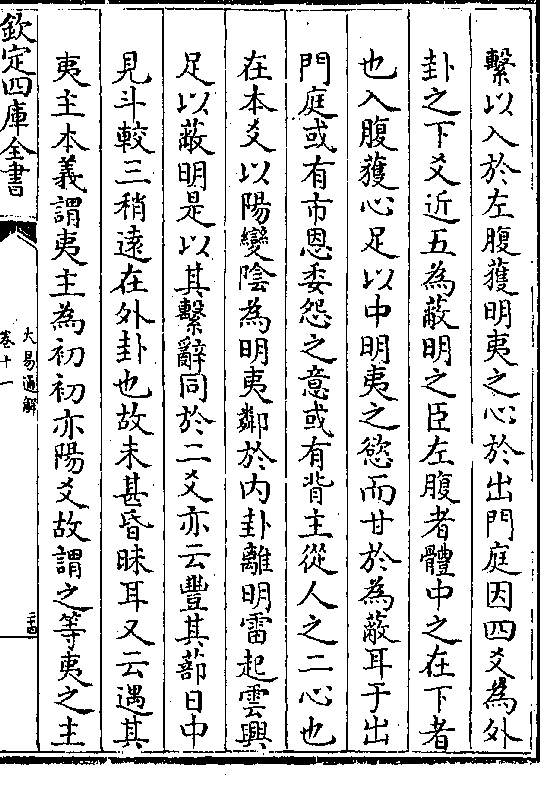 繫以入於左腹獲明夷之心於出門庭因四爻為外
卦之下爻近五為蔽明之臣左腹者體中之在下者
也入腹獲心足以中明夷之慾而甘於為蔽耳于出
門庭或有市恩委怨之意或有背主從人之二心也
在本爻以陽變陰為明夷鄰於內卦離明雷起雲興
足以蔽明是以其繫辭同於二爻亦云豐其蔀日中
見斗較三稍遠在外卦也故未甚昏昧耳又云遇其
夷主本義謂夷主為初初亦陽爻故謂之等夷之主
欽定四庫全書
大易通解
卷十一
二十四